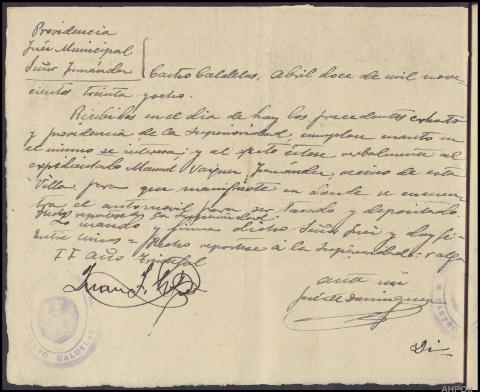 Providencia
Juez Municipal
Señor Fernández
Castro Caldelas, Abril doce de mil nove-
cientos treinta y ocho.
Recibidas en el día de hoy los precedentes exhorto
y providencia de la Superioridad, cumplase cuanto en
el mismo se interesa; y al efecto citese verbalmente al
expedientado Manuel Fernandez, vecino de esta
Villa, para que manifieste en donde se encuen-
tra el automovil para ser tasado y depositado.
Hecho reportese a la Superioridad
Lo mando y firma dicho Señor Juez y doy fé-
Entre lineas = Hecho reportese á la Superioridad = valga
II año Triunfal
ante mi
José de Dominguez
CASTRO CALDELAS
Di
AHPOU